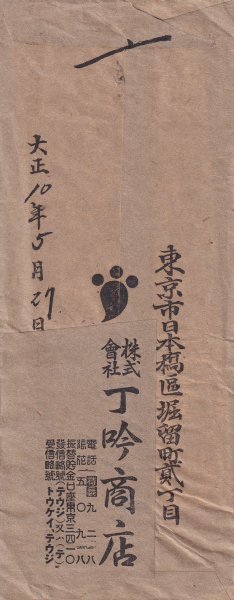 東京市日本橋區堀留町貳丁目
株式會社 丁吟商店
電話 浪花
九二一八
五〇九八
振替貯金口座東京三四一〇
發信略號(テウジ)又ハ(テ)
受信略號 トウケイ、テウジ
大正10年5月27日